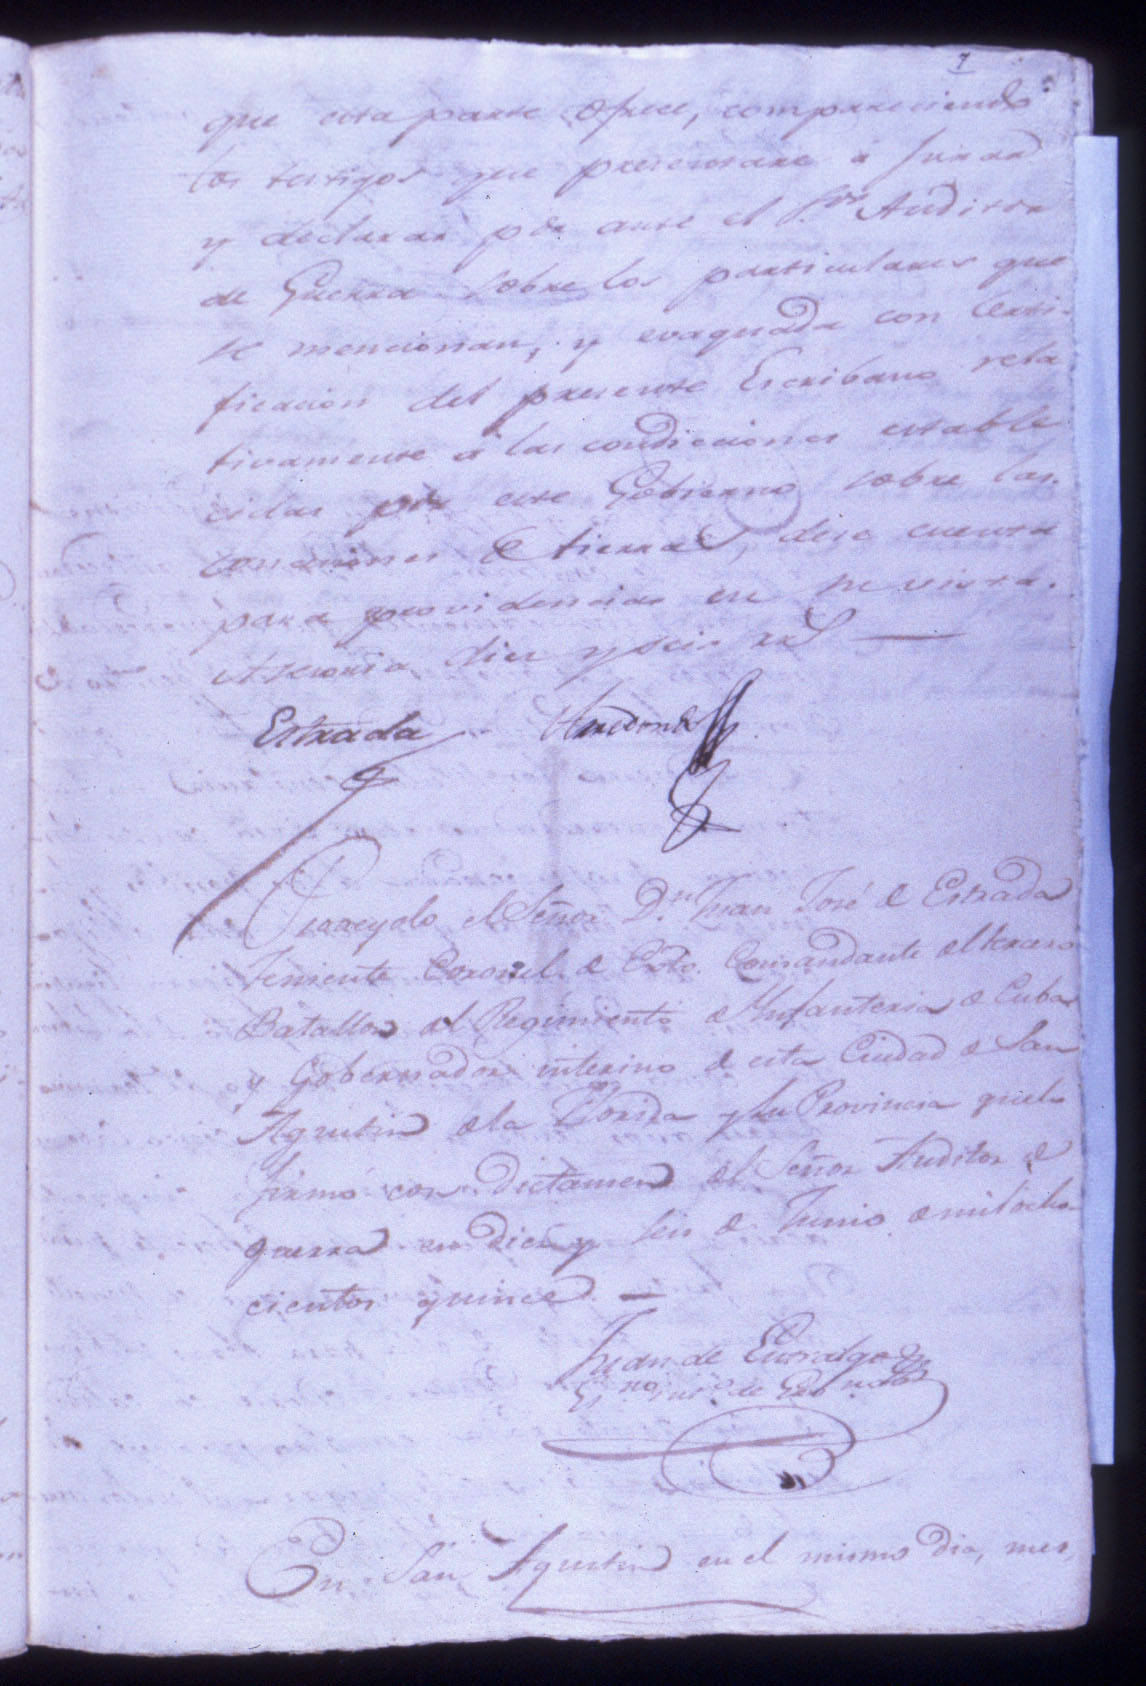 7
que esta parte ofrece, compareciendo
los testigos que presentare a jurar
y declarar por ante el S.or Auditor
de Guerra sobre los particulares que
se mencionan, y evaquada con Certi-
ficacion del presente Escribano rela
tivamente á las condiciones estable
cidas por este Gobierno sobre las
conseciones de tierras, dese cuenta
para providenciar en su vista.
Asesoria diez y seis rrs
Estrada Arredondo
Proveyolo el Señor D.n Juan José de Estrada
Teniente Coronel de Exto. Comandante del tercero
Batallon del Regimiento de Infanteria de Cuba
y Gobernador interino de esta Ciudad de San
Agustin dela Florida y su Provincia quelo
firmó con dictamen del Señor Auditor de
guerra en diez y seis de Junio de mil ocho-
cientos quince
Juan de Entralgo
Es.no int.o de Gob.no
En San Agustin en el mismo dia, mes,